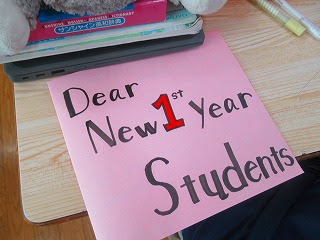 サンシャイン英和辞典
Dear
New 1st Year
Students